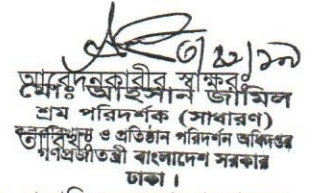 ৩/১২/১৭
আবেদনকারীর স্বাক্ষরঃ
মোঃ আহসান জামিল
শ্রম পরিদর্শক (সাধারণ)
তারিখঃ
ও প্রতিষ্ঠান পরিদর্শন অধিদপ্তর
গণপ্রজাতন্ত্রী বাংলাদেশ সরকার
ঢাকা ।